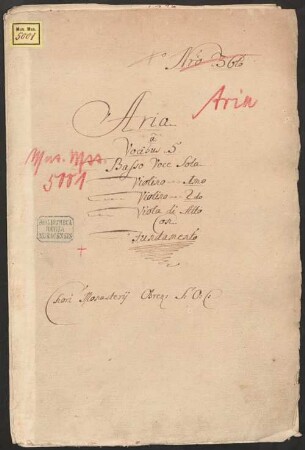 Mus. Mss.
5001
Nro 366
Aria
Aria
à
Vocibus 5
Mus. Mss.
5001
Basso Voce Sola
Violino 1mo
Violino 2do
Viola di Alto
Con
Fundamento
BIBLIOTHECA
REGIA
MONACENSIS
Chori Monasterij